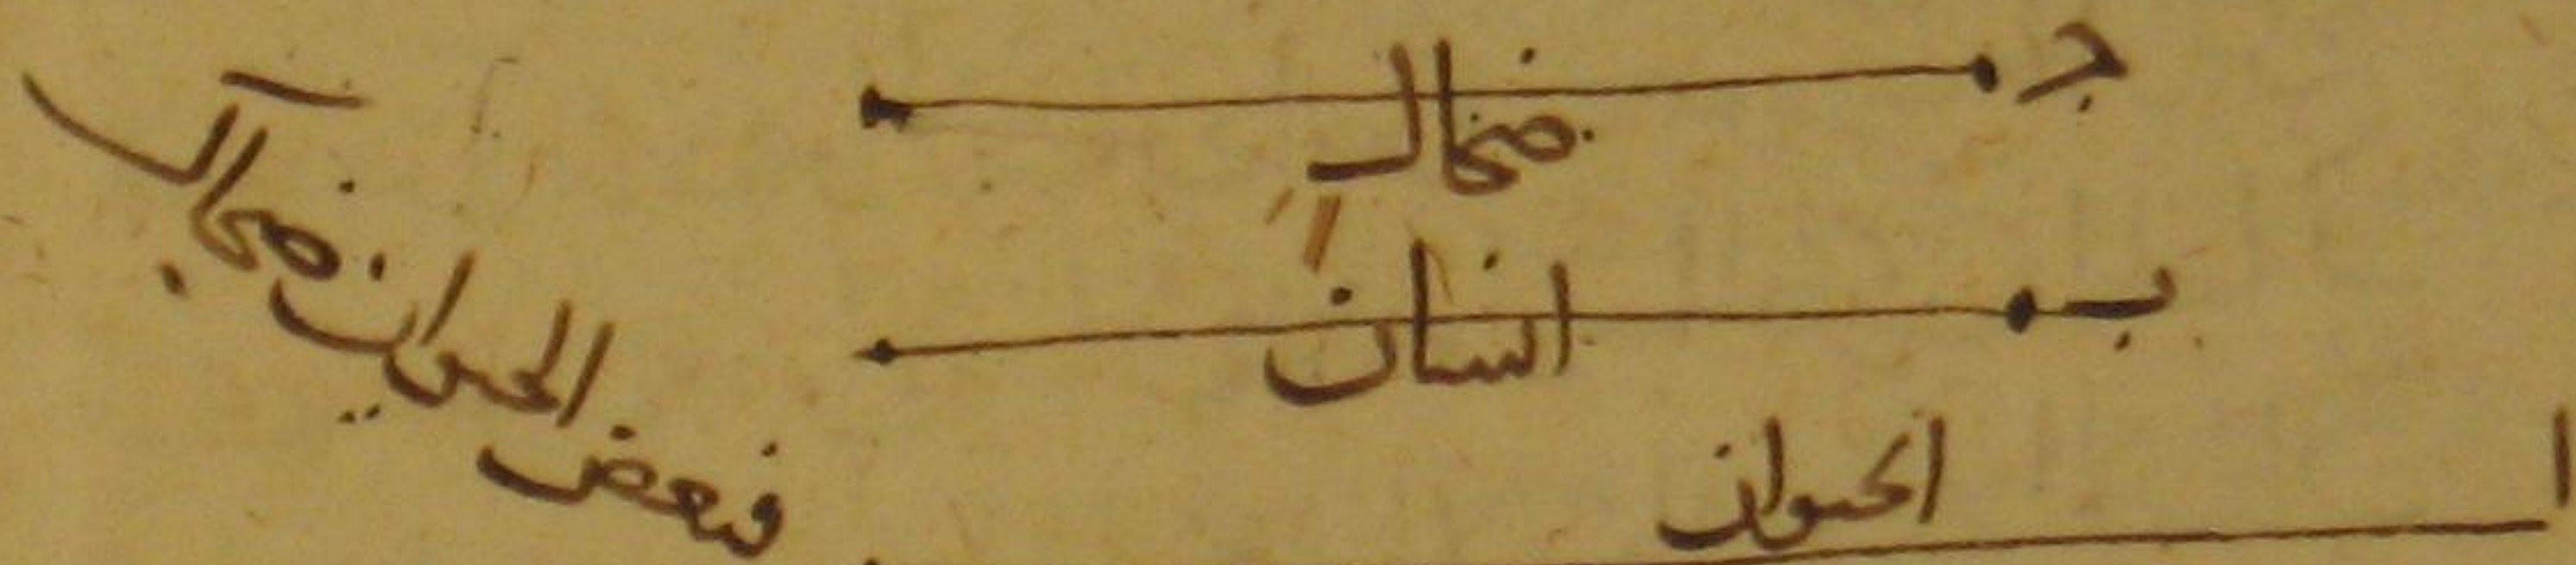 ج
ضحاك
ب
انسان
ا
الحيوان
فبعض الحيوان ضحاك